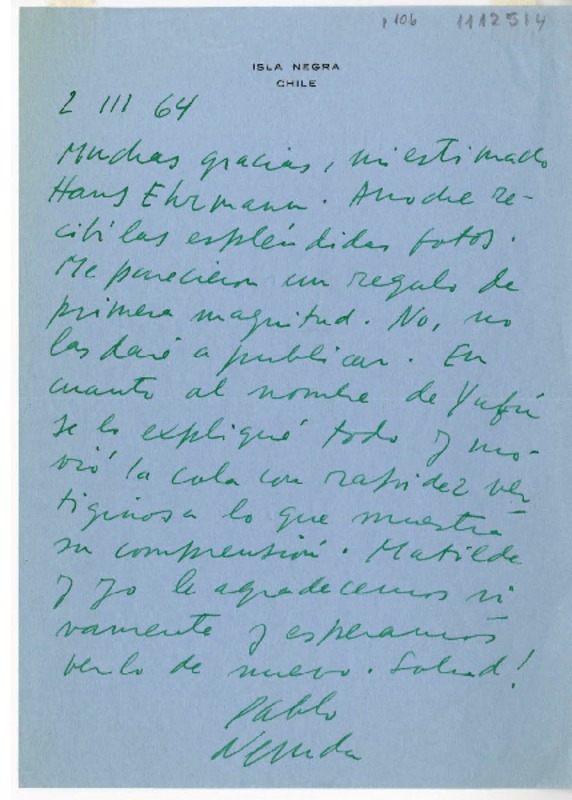 106 1112514
ISLA NEGRA
CHILE
2 III 64
Muchas gracias, mi estimado
Hans Ehrmann. Anoche re-
cibí las espléndidas fotos.
Me parecieron un regalo de
primera magnitud. No, no
las daré a publicar. En
cuanto al nombre de Yufú
se lo expliqué todo y mo-
vió la cola con rapidez ver
tiginosa lo que muestra
su comprensión. Matilde
y yo le agradecemos vi
vamente y esperamos
verlo de nuevo. Salud!
Pablo
Neruda